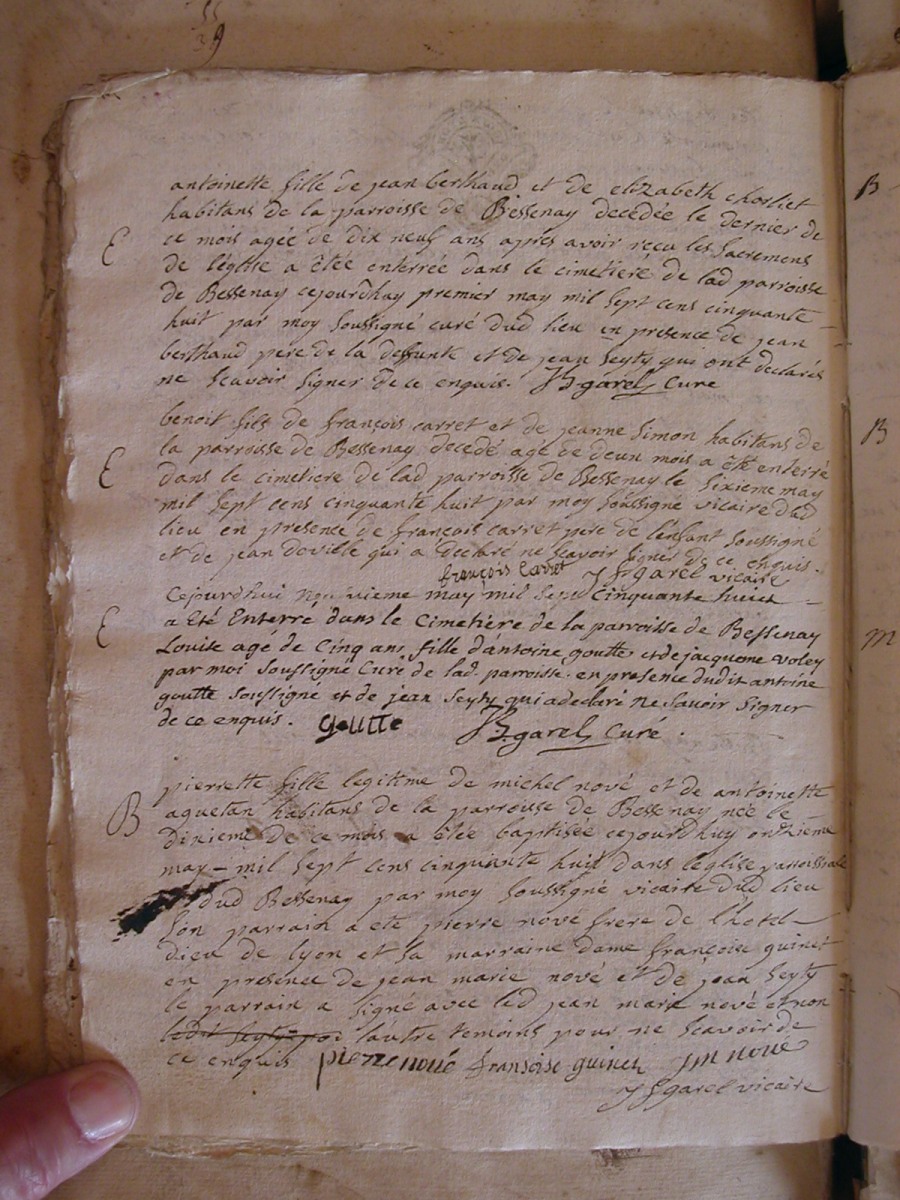 39
antoinette fille de jean berthaud et de elizabeth chorliet
habitans de la parroisse de Bessenay decedée le dernier de
E
ce mois agée de dix neuf ans apres avoir reçu les sacremens
de l'église a étée enterrée dans le cimetiere de lad parroisse
de Bessenay cejourdhuy premier may mil sept cens cinquante
huit par moy soussigné curé dud lieu en presence de jean
berthaud pere de la deffunte et de jean seyty qui ont declarés
ne scavoir signer de ce enquis. garel curé
benoit fils de françois carret et de jeanne simon habitans de
la parroisse de Bessenay decedé agé de deux mois a été enterré
E
dans le cimetiere de lad parroisse de Bessenay le sixieme may
mil sept cens cinquante huit par moy soussigné vicaire dud
lieu en presence de françois carret pere de l'enfant soussigné
et de jean deville qui a declaré ne scavoir signer de ce enquis.
françois carret garel vicaire
cejourdhui neuvieme may mil sept cinquante huict
E
a Eté Enterré dans le Cimetiére de la parroisse de Bessenay
Louise agé de Cinq ans fille d'antoine goutte et de jacqueme voley
par moi soussigné Curé de lad. parroisse en presence dudit antoine
goutte soussigné et de jean seyty qui a declaré ne savoir signer
de ce enquis. goutte garel Curé.
pierrette fille legitime de michel nové et de antoinette
B
aquetan habitans de la parroisse de Bessenay née le
dixieme de ce mois a étée baptisée cejourdhuy onzieme
may mil sept cens cinquante huit dans l'église parroissiale
dud Bessenay par moy soussigné vicaire dud lieu
son parrain a été pierre nové frere de l'hotel
dieu de lyon et sa marraine dame françoise guinet
en presence de jean marie nové et de jean seyty
le parrain a signé avec led jean marie nové et non
ledit seyty l'autre temoins pour ne scavoir de
ce enquis pierre noué fransoise guinet jm noué
garel vicaire
B
B
m